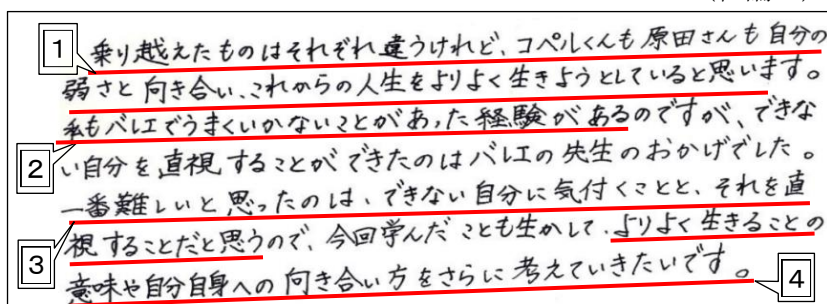 1 乗り越えたものはそれぞれ違うけれど、コペルくんも原田さんも自分の
弱さと向き合い、これからの人生をよりよく生きようとしていると思います。
私もバレエでうまくいかないことがあった経験があるのですが、できな
2 い自分を直視することができたのはバレエの先生のおかげでした。
一番難しいと思ったのは、できない自分に気付くことと、それを直
3 視することだと思うので、今回学んだことも生かして、よりよく生きることの
意味や自分自身への向き合い方をさらに考えていきたいです。 4